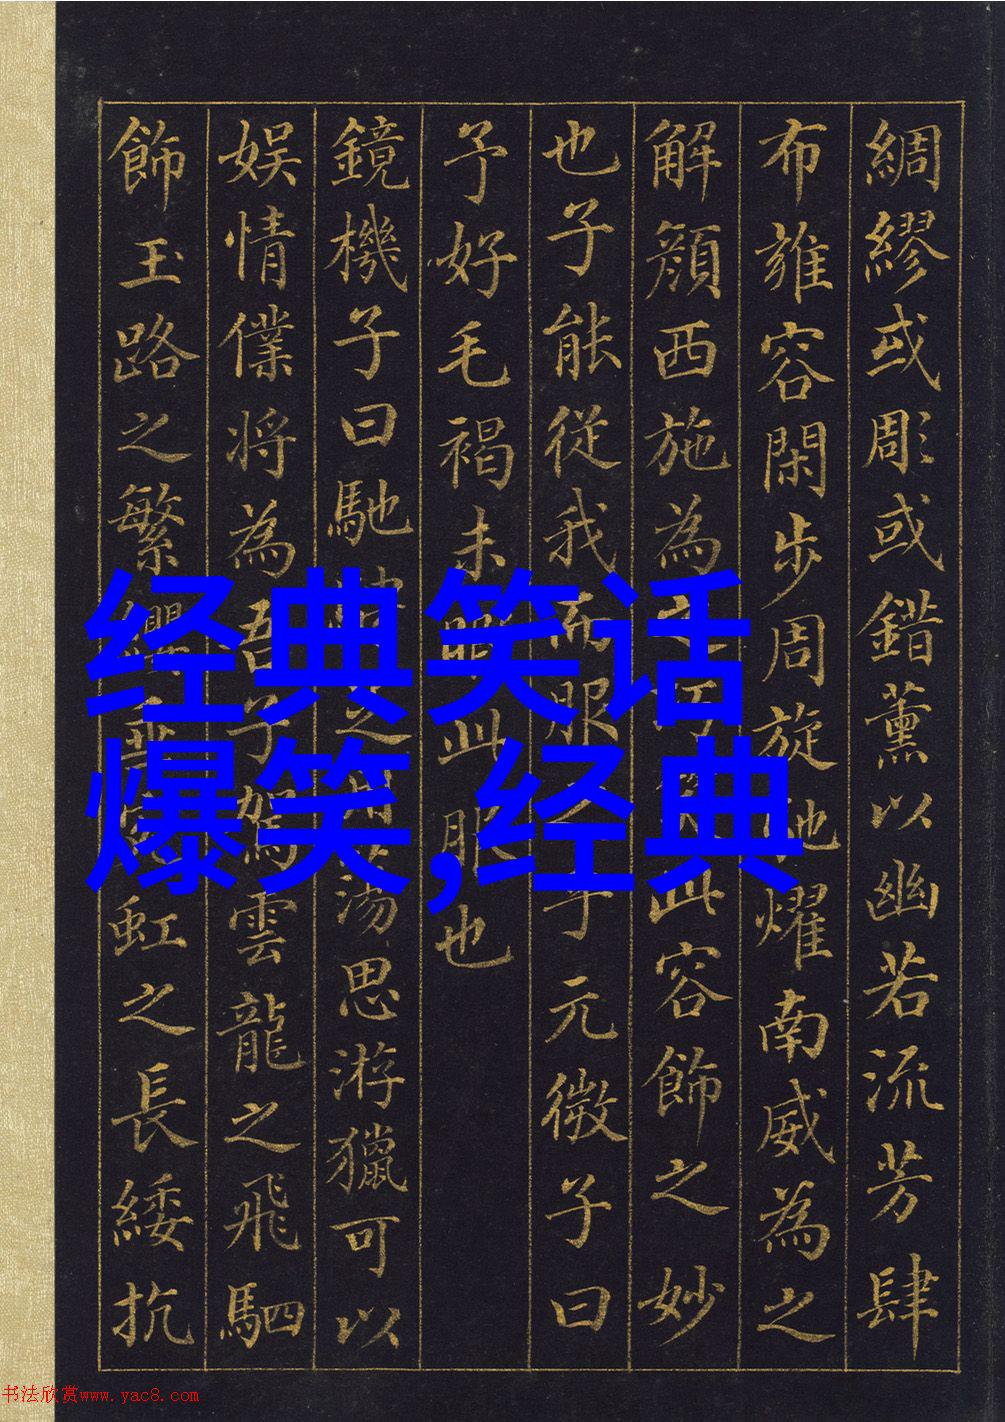 綢繆或彫或錯薰以幽若流芳肆
布雍容閑步周旋馳燿南威為之
解顏西施為巧此容飾之妙
也子能從我而服乎元微子曰
予好毛褐未暇此服也
鏡機子曰馳蕩思游獵可以
娛情僕將為吾子駕雲龍之飛駟
飾玉路之繁纓垂虹之長緌抗
经典笑话
爆笑,经典
书法欣赏www.yac8.com